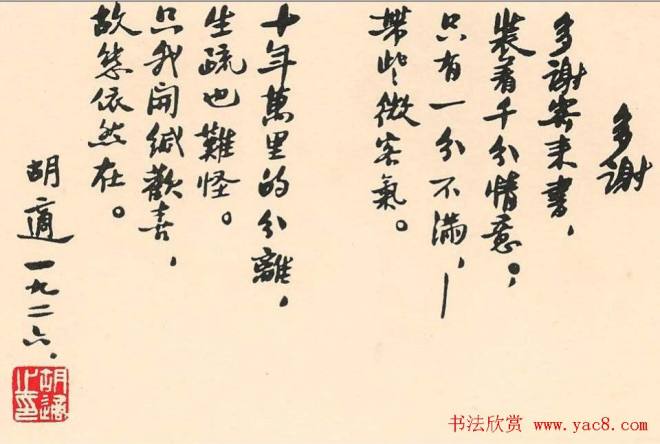 多謝
多謝寄来書，
裝着千分情意。
只有一分不滿，—
帶些微客氣。
十年萬里的分離，
生疏也難怪。
只我開緘歡喜，
故態依然在。
胡適 一九二六.
胡適之印
书法欣赏 www.yac8.com